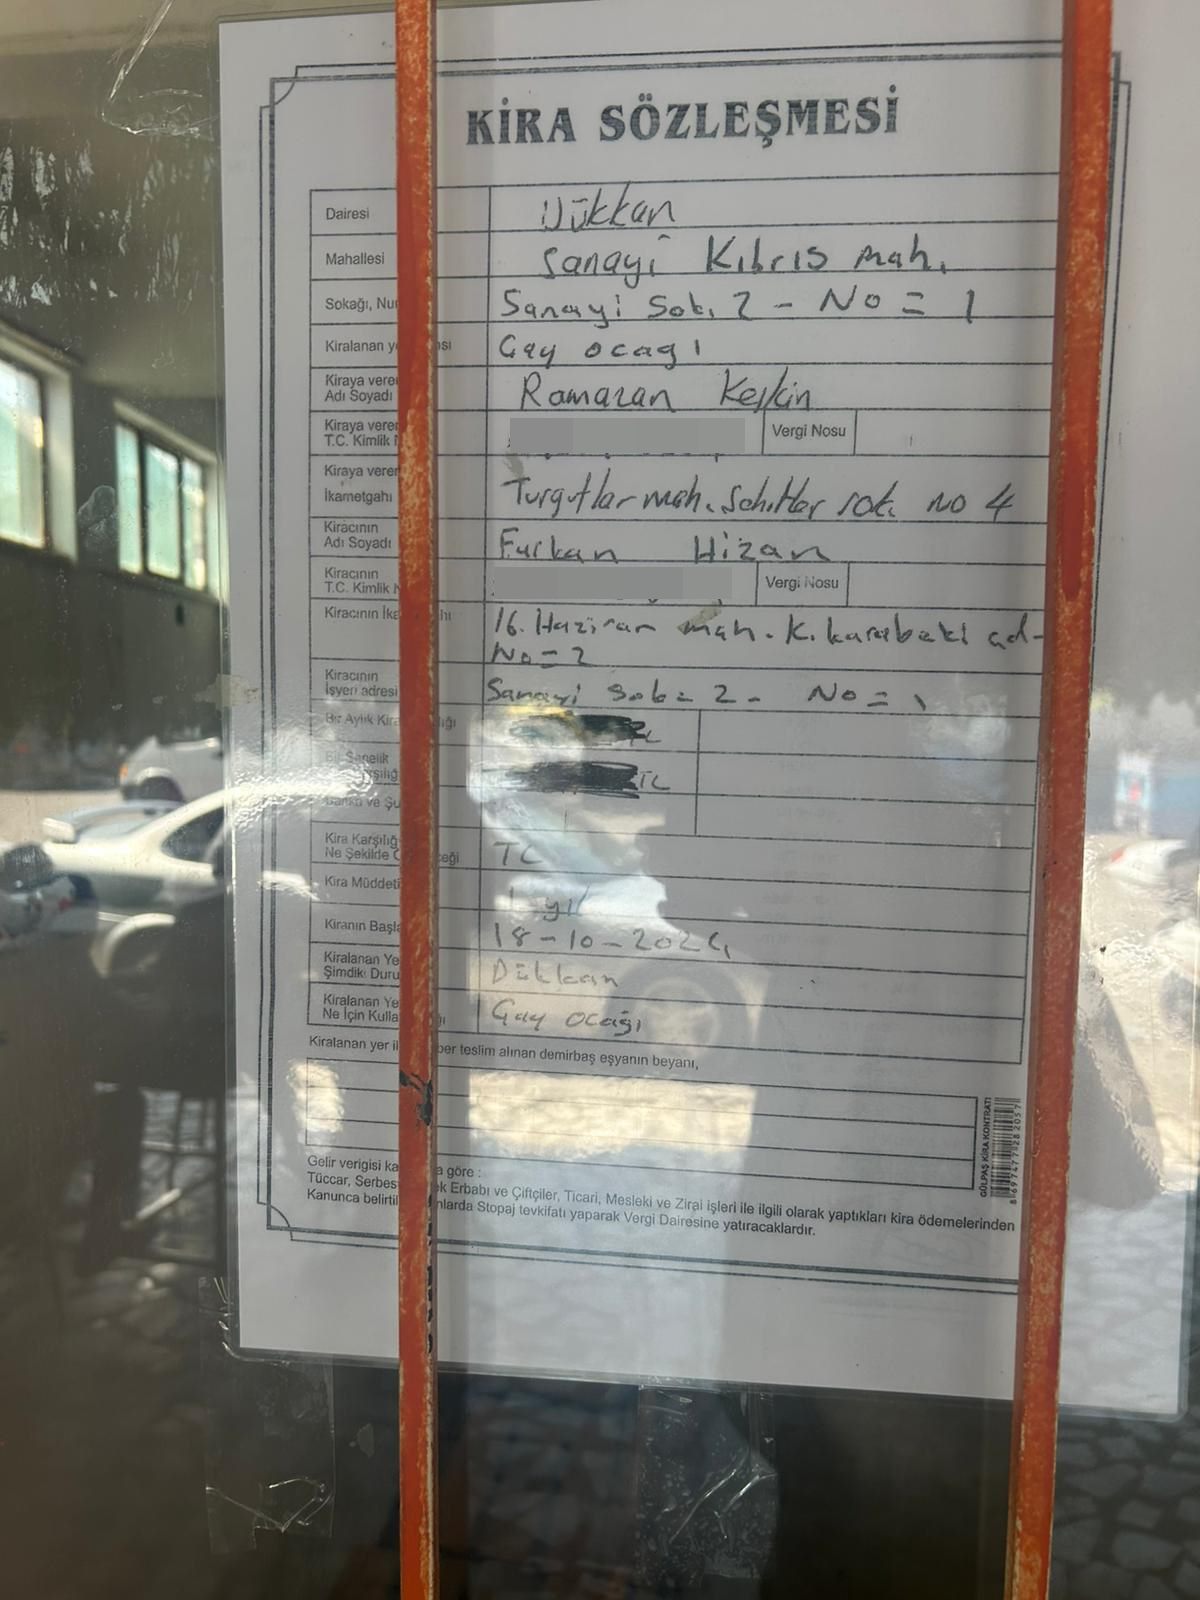 KİRA SÖZLEŞMESİ
Dairesi Dükkan
Mahallesi Sanayi Kıbrıs mah.
Sokağı, Nu Sanayi Sok. 2 - No = 1
Kiralanan ye sı Çay ocağı
Kiraya vere
Adı Soyadı Ramazan Keskin
Kiraya verer
T.C. Kimlik Vergi Nosu
Kiraya verer
İkametgahı Turgutlar mah. Şehitler sok. no 4
Kiracının
Adı Soyadı Furkan Hizan
Kiracının
T.C. Kimlik Vergi Nosu
Kiracının İka hı 16. Haziran mah. K. karabekı cd-
No = 2
Kiracının
İşyeri adresi Sanayi Sok = 2 - No = 1
Bir Aylık Kira lığı TL
Bir Senelik
rşılığ TL
ve Şu
Kira Karşılığ
Ne Şekilde Ö eceği TL
Kira Müddeti 1 yıl
Kiranın Başla 18-10-2024
Kiralanan Ye
Şimdik Duru Dükkan
Kiralanan Ye
Ne İçin Kulla ğı Çay ocağı
Kiralanan yer il ber teslim alınan demirbaş eşyanın beyanı,
GÜLPAŞ KİRA KONTRATI
8 697477 282057
Gelir verigisi ka a göre :
Tüccar, Serbes ek Erbabı ve Çiftçiler, Ticari, Mesleki ve Zirai işleri ile ilgili olarak yaptıkları kira ödemelerinden
Kanunca belirtil nlarda Stopaj tevkifatı yaparak Vergi Dairesine yatıracaklardır.